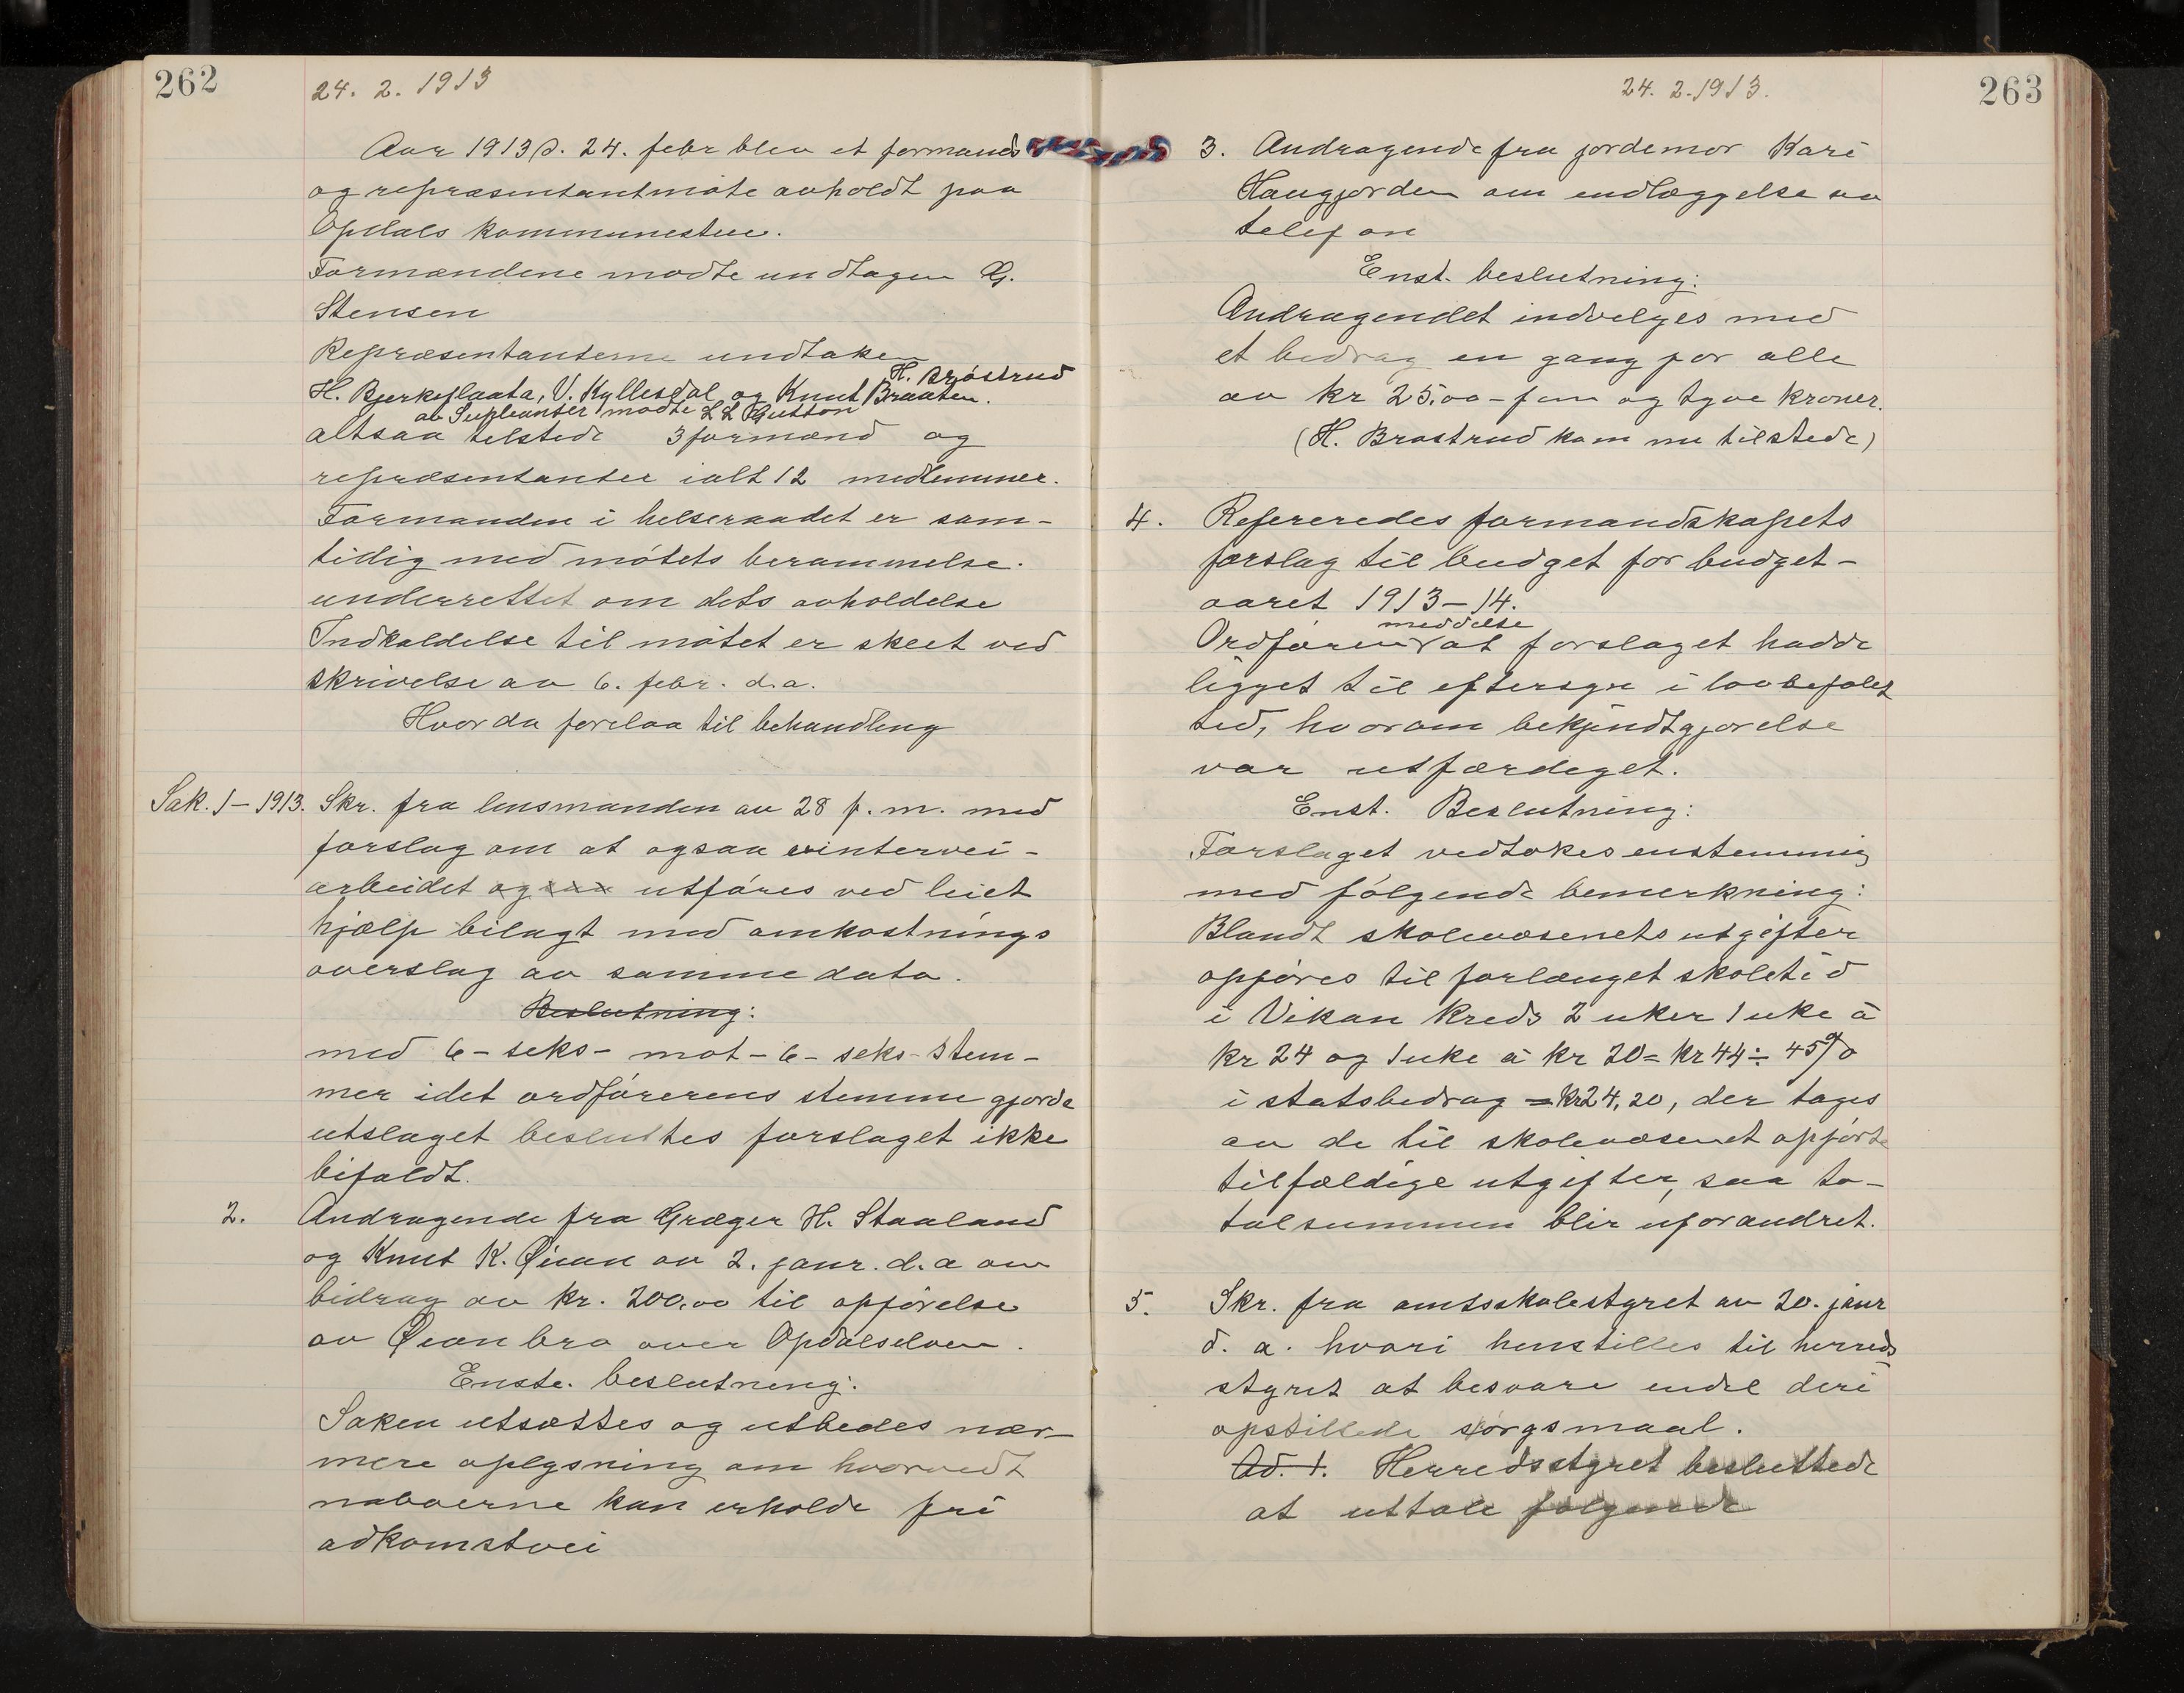 262
24. 2. 1913
Aar 1913 d. 24. febr blev et formands
og repræsentantmøte avholdt paa
Opdals kommunestue.
Formændene mødte undtagen G.
Stensen
Repræsentanterne undtaken
H. Brøstrud
H. Bjerkeflaata, V. Kyllesdal og Knut Braaten.
av Supleanter mødte L L Gutton
altsaa tilstede 3 formænd og
repræsentanter ialt 12 medlemmer.
Formanden i helseraadet er sam-
tidig med møtets berammelse.
underrettet om dets avholdelse
Indkaldelse til møtet er skeet ved
skrivelse av 6. febr. d.a.
Hvor da forelaa til behandling
Sak. 1 - 1913. Skr. fra lensmanden av 28 f. m. med
forslag om at ogsaa vintervei-
arbeidet ogsaa utføres ved leiet
hjælp bilagt med omkostnings
overslag av samme dato.
Beslutning:
med 6 - seks - mot - 6 - seks - stem-
mer idet ordførerens stemme gjorde
utslaget besluttes forslaget ikke
bifaldt.
2. Andragende fra Græger H. Staaland
og Knut K. Øian av 2. janr. d.a om
bidrag av kr. 200,00 til opførelse
av Øian bro over Opdalselven.
Enste. beslutning:
Saken utsættes og utbedes nær-
mere oplysning om hvorvidt
naboerne kan erholde fri
adkomstvei
263
24. 2. 1913.
3. Andragende fra jordemor Kari
Haugjorden om indlæggelse av
telefon
Enst. beslutning:
Andragendet indvelges med
et bedrag en gang for alle
av kr 25.00 - fem og tyve kroner.
(H. Brøstrud kom nu tilstede)
4. Refereredes formandskapets
forslag til budget for budget-
aaret 1913 - 14.
meddelte
Ordføreren at forslaget hadde
ligget til eftersyn i lovbefalet
tid, hvorom bekjendtgjørelse
var utfærdiget.
Enst. Beslutning:
Forslaget vedtokes enstemmig
med følgende bemerkning:
Blandt skolevæsenets utgifter
opføres til forlænget skoletid
i Vikan kreds 2 uker 1 uke à
kr 24 og 1 uke à kr 20 = kr 44 ÷ 45 %
i statsbedrag = kr 24,20, der tages
av de til skolevæsenet opførte
tilfældige utgifter, saa to-
talsummen blir uforandret.
5. Skr. fra amtsskolestyret av 20. janr
d. a. hvori henstilles til herreds
styret at besvare endel deri
opstillede spørgsmaal.
Ad. 1. Herredsstyret besluttede
at uttale følgende